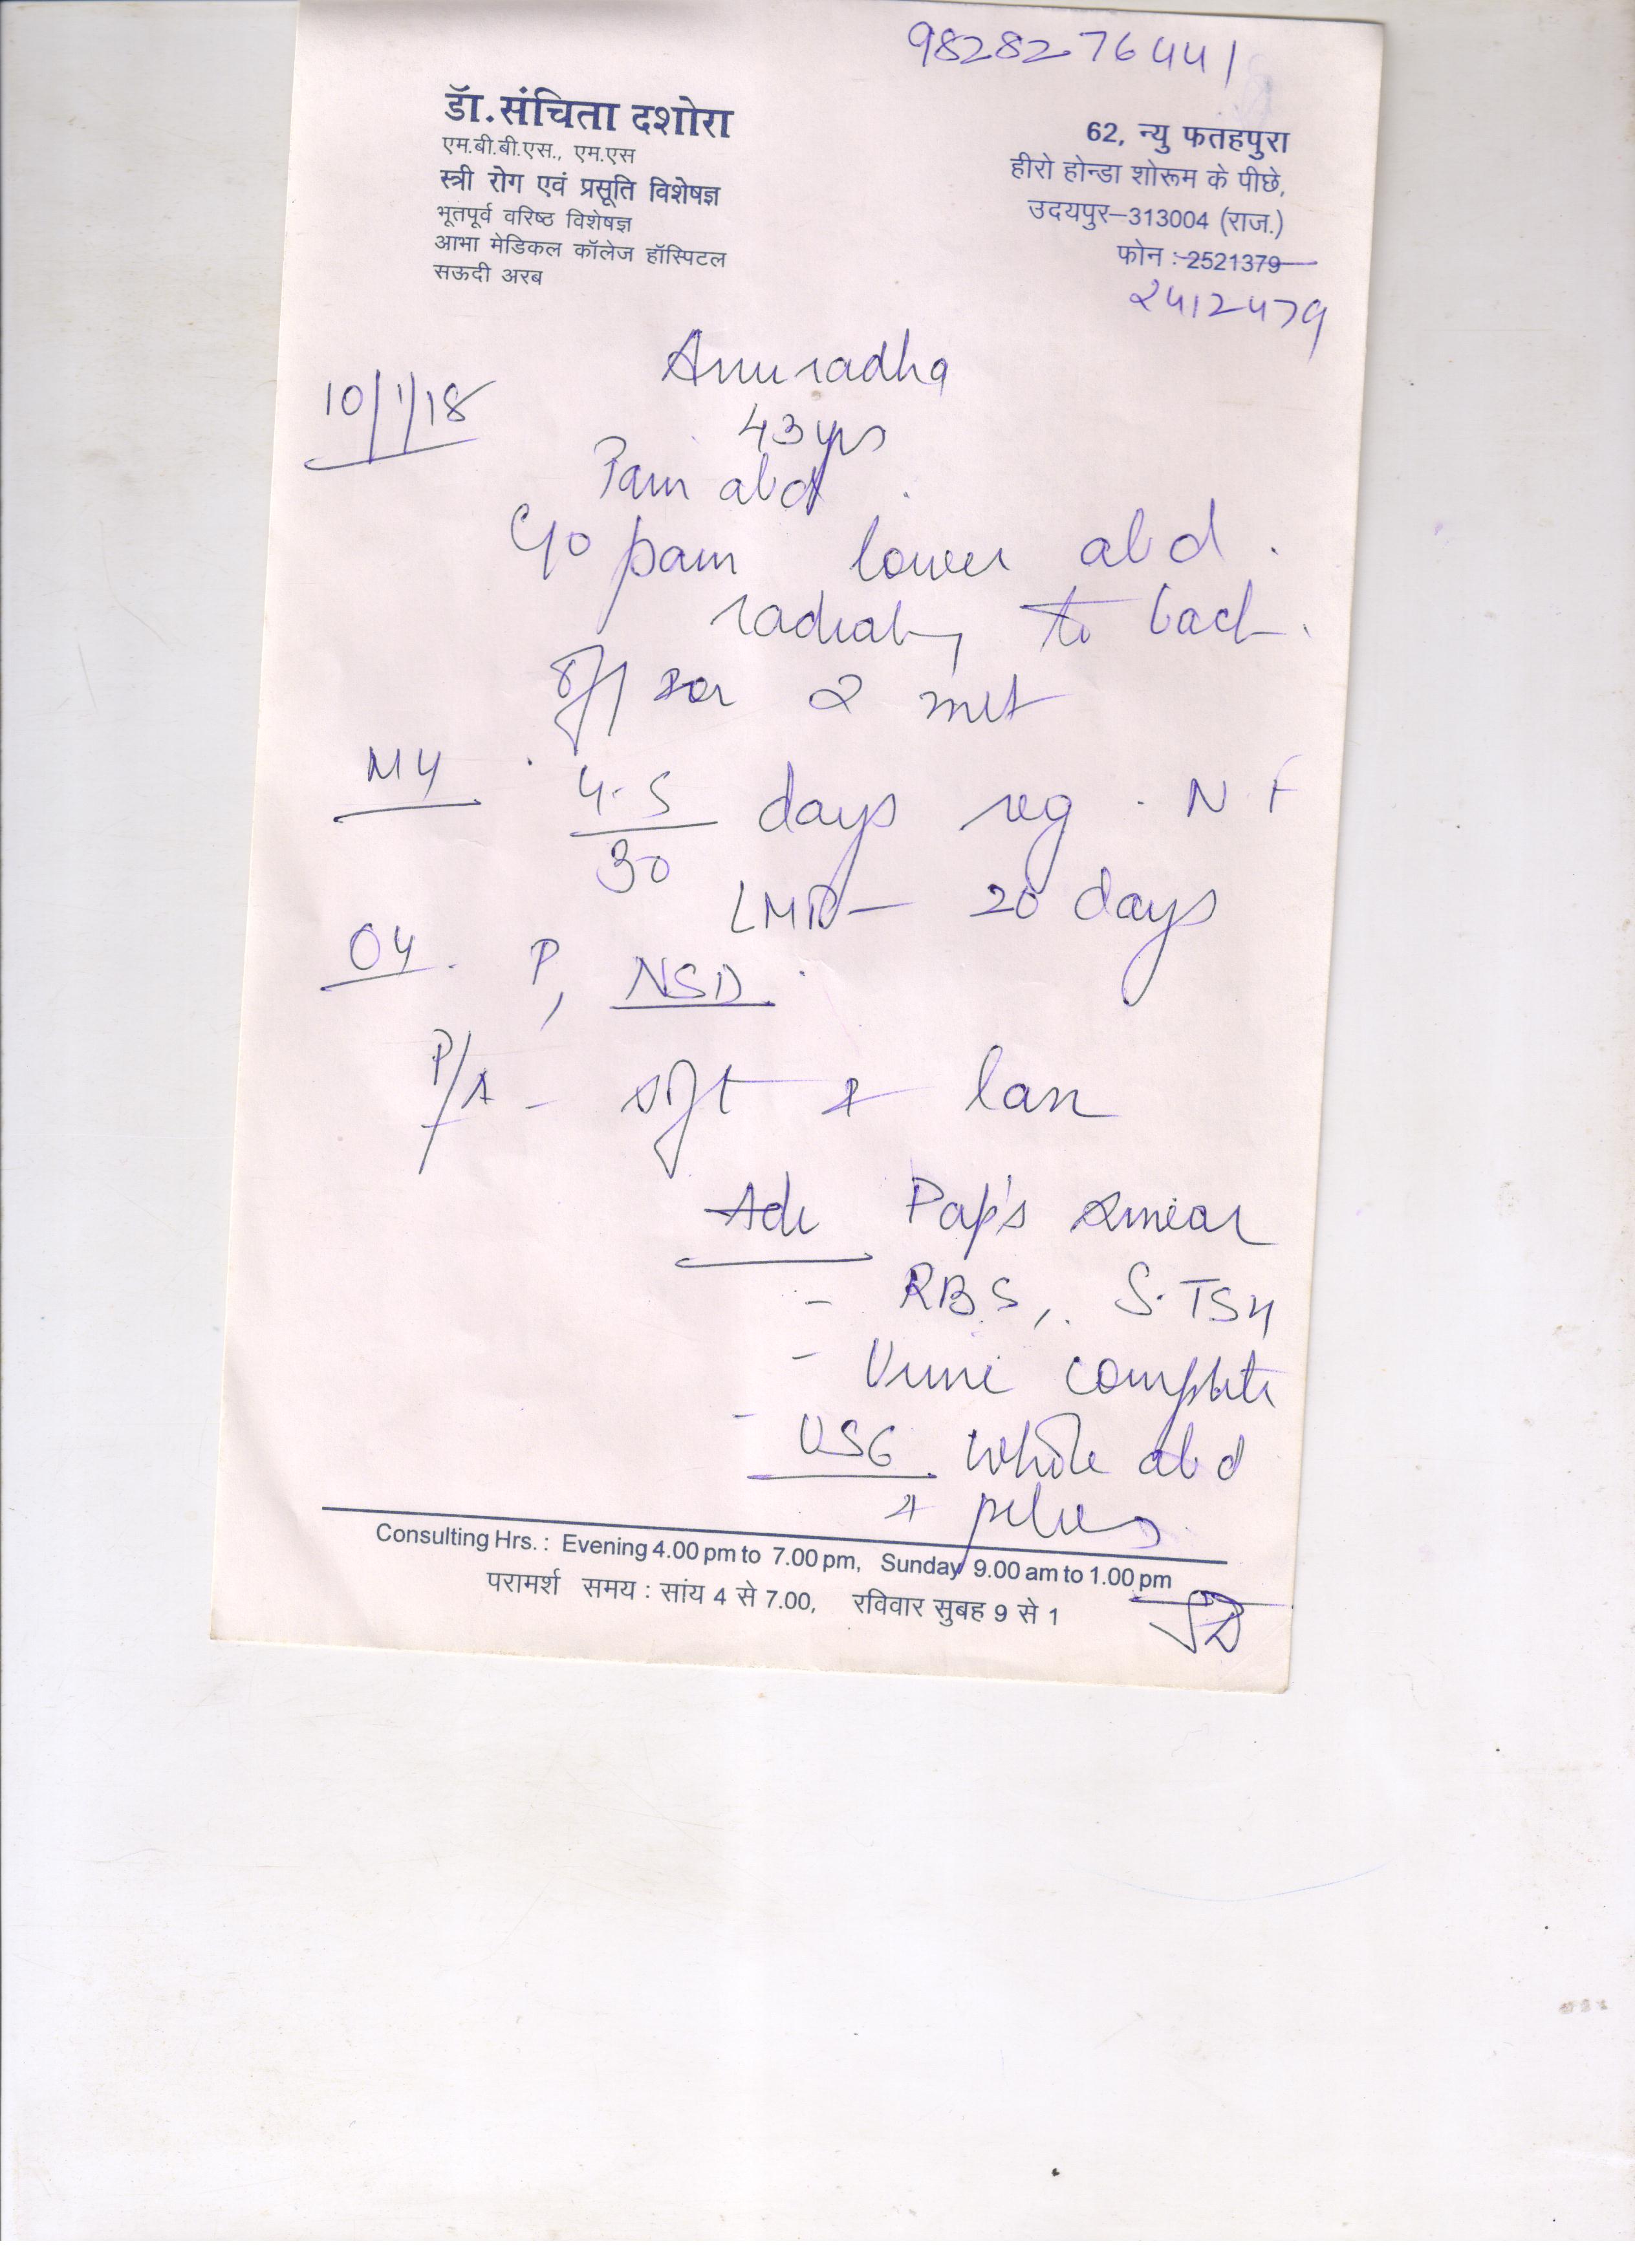 9828276441
डॉ. संचिता दशोरा
एम.बी.बी.एस., एम.एस
स्त्री रोग एवं प्रसूति विशेषज्ञ
भूतपूर्व वरिष्ठ विशेषज्ञ
आभा मेडिकल कॉलेज हॉस्पिटल
सऊदी अरब
62, न्यु फतहपुरा
हीरो होन्डा शोरूम के पीछे,
उदयपुर–313004 (राज.)
फोन : 2521379
2412479
Anuradha
10/1/18
43 yrs
Pain abd
C/o pain lower abd.
radiating to back.
M/H 4-5/30 days reg. N F
LMP – 20 days
O/H. P1 NSD
P/A – soft & lax
Adv Pap's smear
- RBS, S.TSH
- Urine complete
- USG whole abd
+ pelvis
Consulting Hrs. : Evening 4.00 pm to 7.00 pm, Sunday 9.00 am to 1.00 pm
परामर्श समय : सांय 4 से 7.00, रविवार सुबह 9 से 1